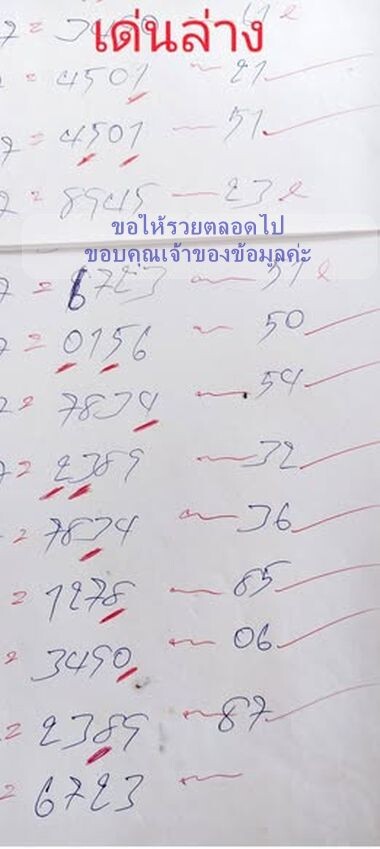 เด่นล่าง
7 = 3490
= 4501 – 21
7 = 4501 – 51
7 = 8945 – 23 ℓ
ขอให้รวยตลอดไป
ขอบคุณเจ้าของข้อมูลค่ะ
7 = 6723 – 51 ℓ
7 = 0156 – 50
= 7834 – 54
7 = 2389 – 32
= 7834 – 36
= 1278 – 85
= 3490 – 06
= 2389 – 87
= 6723 –